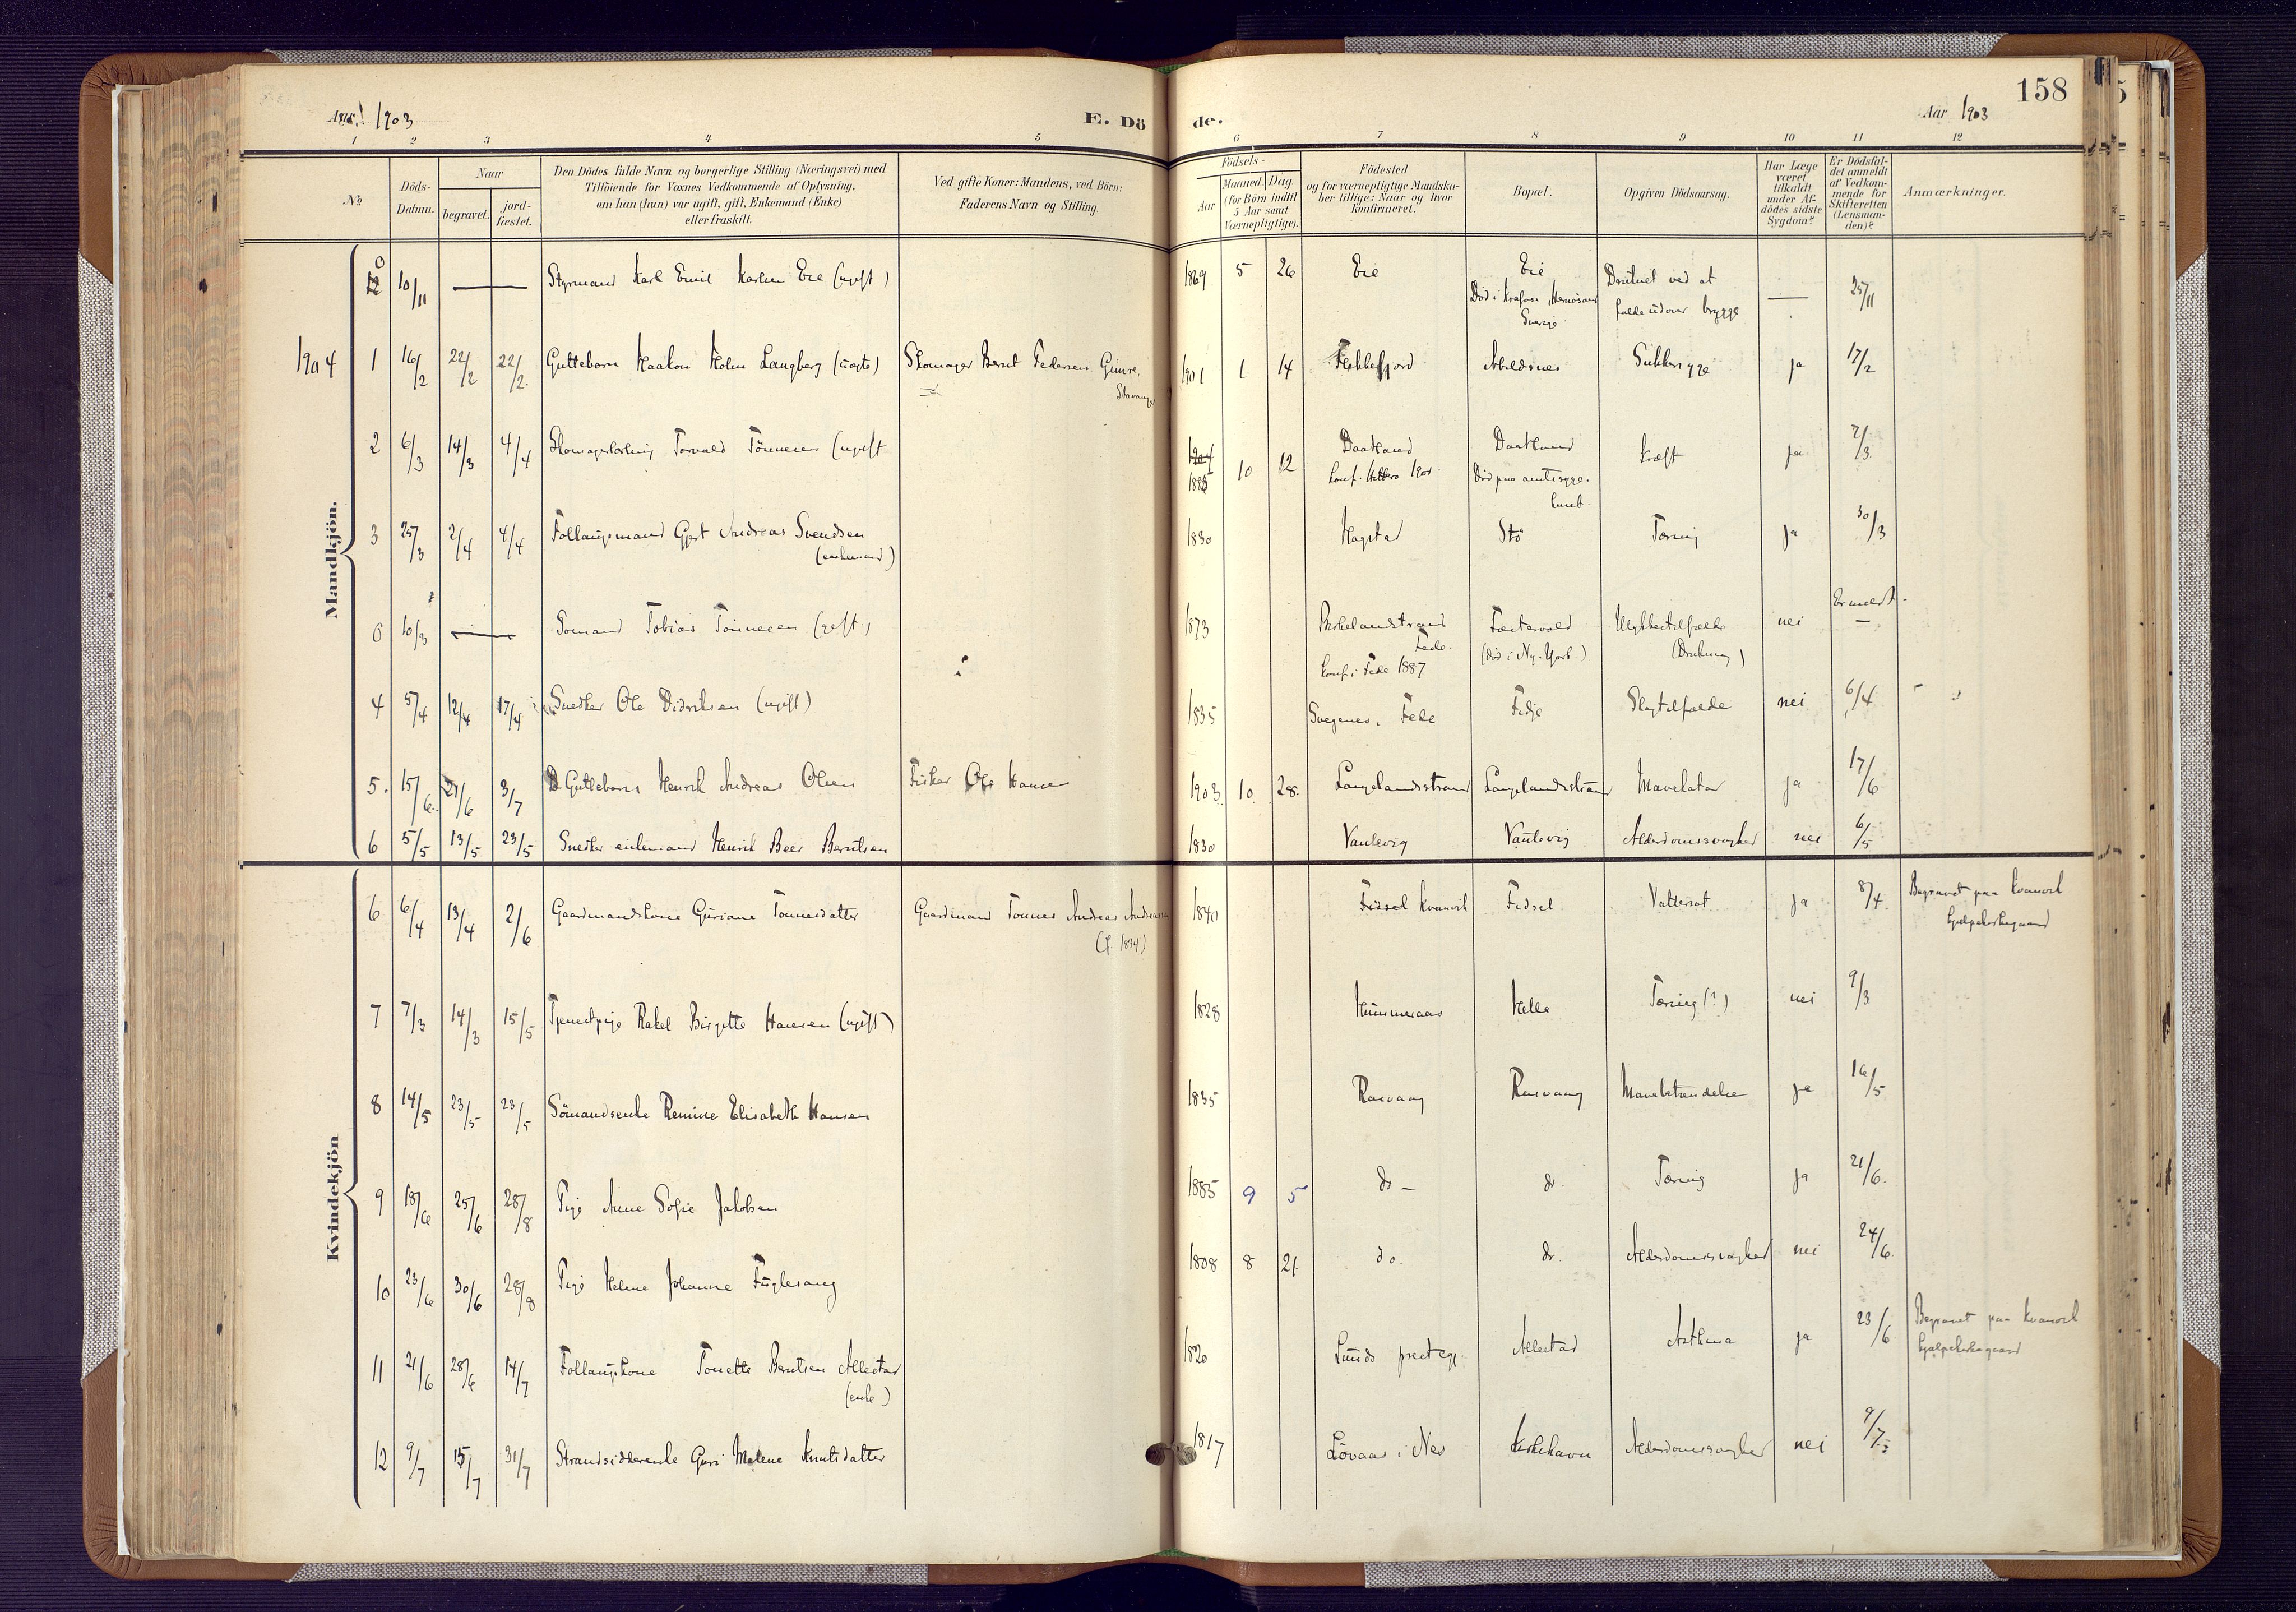 158
Aar 1903
E. Dö de.
Aar 1903
1 2 3 4 5 6 7 8 9 10 11 12
№
Döds-
Datum.
Naar
begravet.
jord-
fæstet.
Den Dödes fulde Navn og borgerlige Stilling (Næringsvei) med
Tilföiende for Voxnes Vedkommende af Oplysning,
om han (hun) var ugift, gift, Enkemand (Enke)
eller fraskilt.
Ved gifte Koner: Mandens, ved Börn:
Faderens Navn og Stilling.
Födsels-
Aar
Maaned. Dag.
(for Börn indtil
5 Aar samt
Værnepligtige).
Födested
og for værnepligtige Mandska-
ber tillige: Naar og hvor
konfirmeret.
Bopæl.
Opgiven Dödsaarsag.
Har Læge
været
tilkaldt
under Af-
dödes sidste
Sygdom?
Er Dödsfal-
det anmeldt
af Vedkom-
mende for
Skifteretten
(Lensman-
den)?
Anmærkninger.
Mandkjön.
0 10/11 — Styrmand Karl Emil Karlsen Eie (ugift) 1869 5 26 Eie Eie Druknet ved at — 25/11
Död i Krafors, Hernösand falde udover brygge
Sverige
1904 1 16/2 22/2 22/2 Guttebarn Haakon Holm Langberg (uægte) Skomager Bernt Pedersen Gimre, 1901 1 14 Flekkefjord Abelsnes Sukkersyge ja 17/2
Stavanger
2 6/3 14/3 4/4 Skomagerlærling Torvald Tönnesen (ugift 1885 10 12 Daatland Daatland Kræft ja 7/3
Konf. Hitterö 1901 Död paa amtssyge-
huset
3 25/3 2/4 4/4 Föllaugsmand Gjert Andreas Svendsen 1830 Hagstad Stö Tæring ja 30/3
(enkemand)
0 10/3 — Sömand Tobias Tönnesen (gift) 1873 Birkelandstrand Ulykkestilfælde nei Er meldt. —
Fede. (död i Ny-York.) (Drukning)
Konf. i Fede 1887
4 5/4 12/4 17/4 Snedker Ole Didriksen (ugift) 1835 Svegenes, Fede Fedje Slagtilfælde nei 6/4
5. 15/6 21/6 3/7 Guttebarn Henrik Andreas Olsen Fisker Ole Hansen 1903 10. 28. Langelandsstrand Langelandsstrand Mavekatar ja 17/6
6 5/5 13/5 23/5 Snedker enkemand Henrik Beer Berntsen 1830 Vaulevig Vaulevig Alderdomssvaghed nei 6/5
Kvindekjön
6 6/4 13/4 2/6 Gaardmandskone Guriane Tönnesdatter Gaardmand Tönnes Andreas Andreassen 1840 Fidsel Kvanvik Fidsel Vattersot ja 8/4 Begravet paa Kvanvik
(f. 1834) hjælpekirkegaard
7 7/3 14/3 15/5 Tjenestpige Rakel Birgitte Hansen (ugift) 1828 Hummeraas Helle Tæring (?) nei 9/3
8 14/5 23/5 23/5 Sömandsenke Remine Elisabeth Hansen 1835 Rasvaag Rasvaag Mavebetændelse ja 16/5
9 18/6 25/6 28/8 Pige Anne Sofie Jakobsen 1885 9 5 do — do. Tæring ja 21/6.
10 23/6 30/6 28/8 Pige Helene Johanne Fuglesang 1808 8 21. do. do. Alderdomssvaghed nei 24/6.
11 21/6 28/6 14/7 Föllaugskone Tonette Berntsen Allestad 1820 Lunds prestegj. Allestad Asthma ja 23/6 Begravet paa Kvanvik
(enke) hjælpekirkegaard
12 9/7 15/7 31/7 Strandsidderenke Guri Malene Knutsdatter 1817 Lövaas i Nes Kirkehavn Alderdomssvaghed nei 9/7